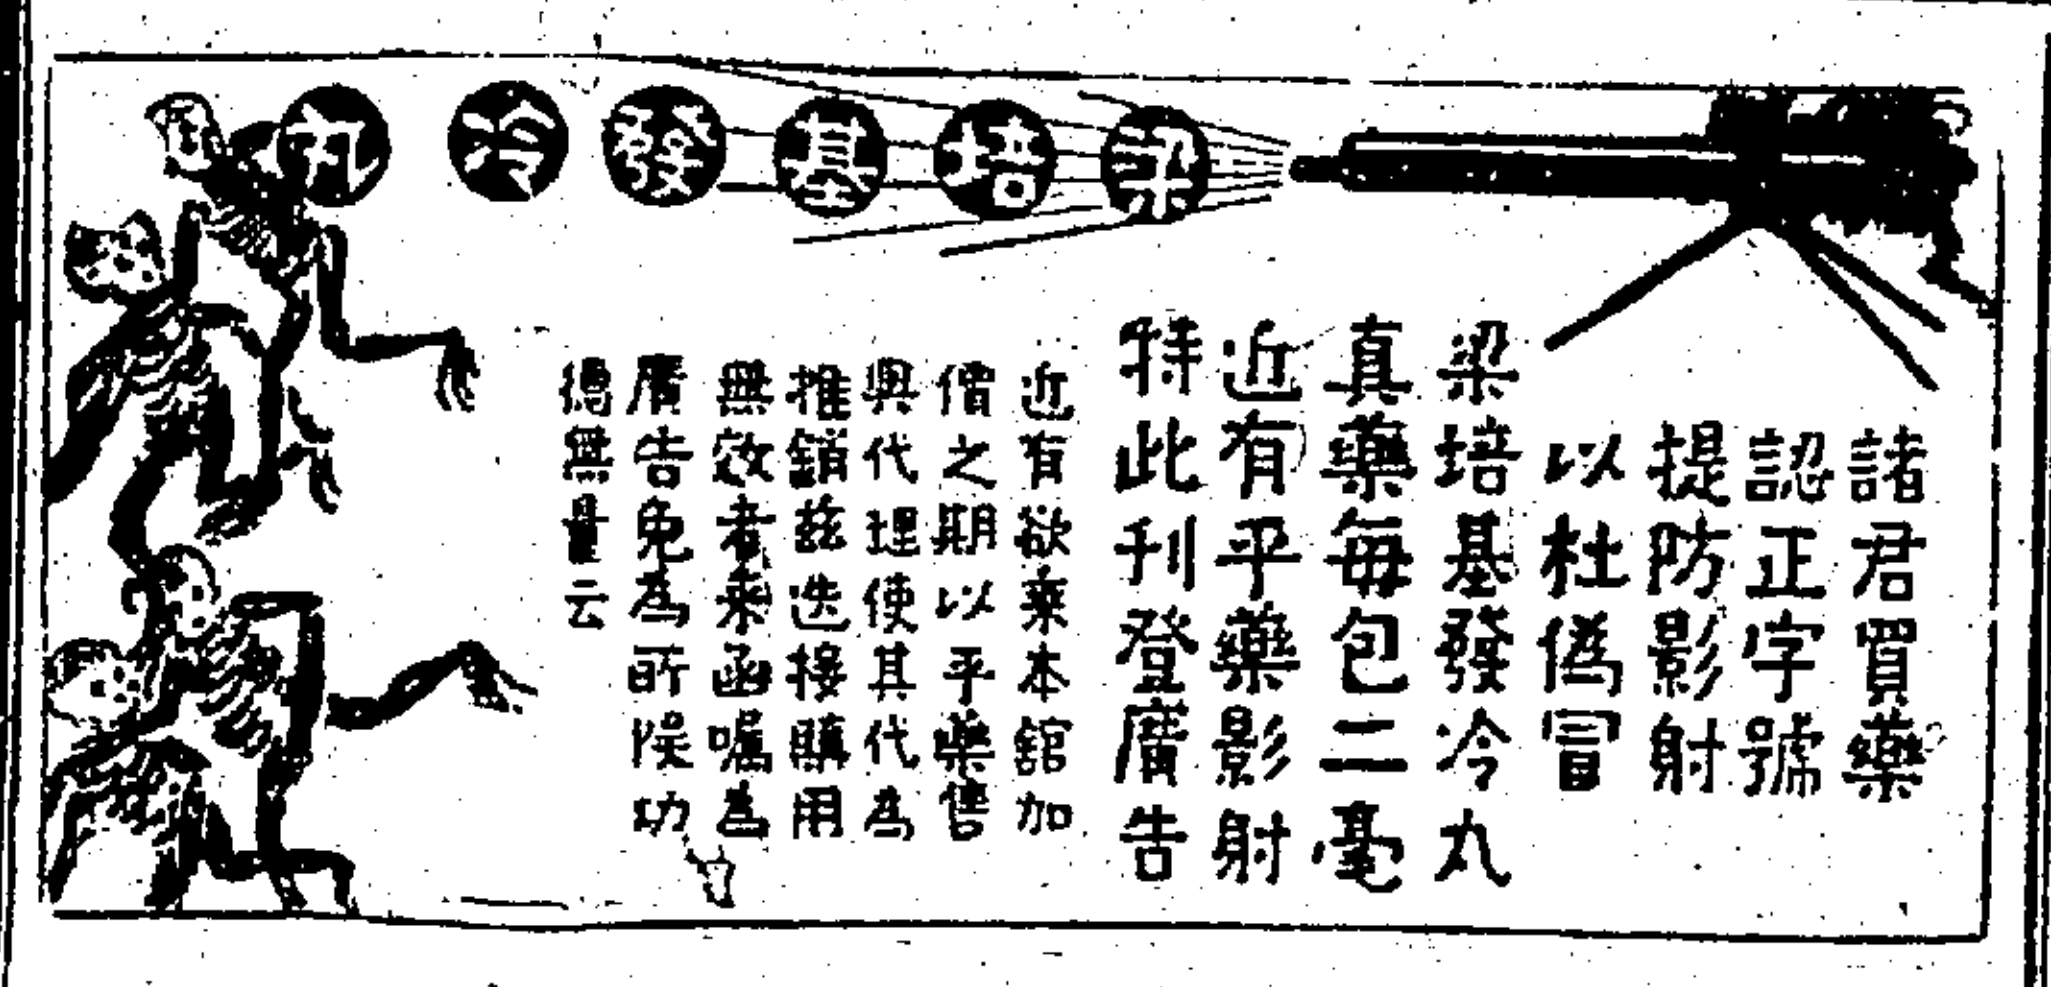 梁培基發冷丸
諸君買藥
認正字號
提防影射
以杜偽冒
梁培基發冷丸
真藥每包二毫
近有平藥影射
特此刊登廣告
近有欲棄本舘加
僧之期以平藥售
與代理使其代為
推銷茲迭接購用
無效者來函囑為
廣告免為所悞功
德無量云